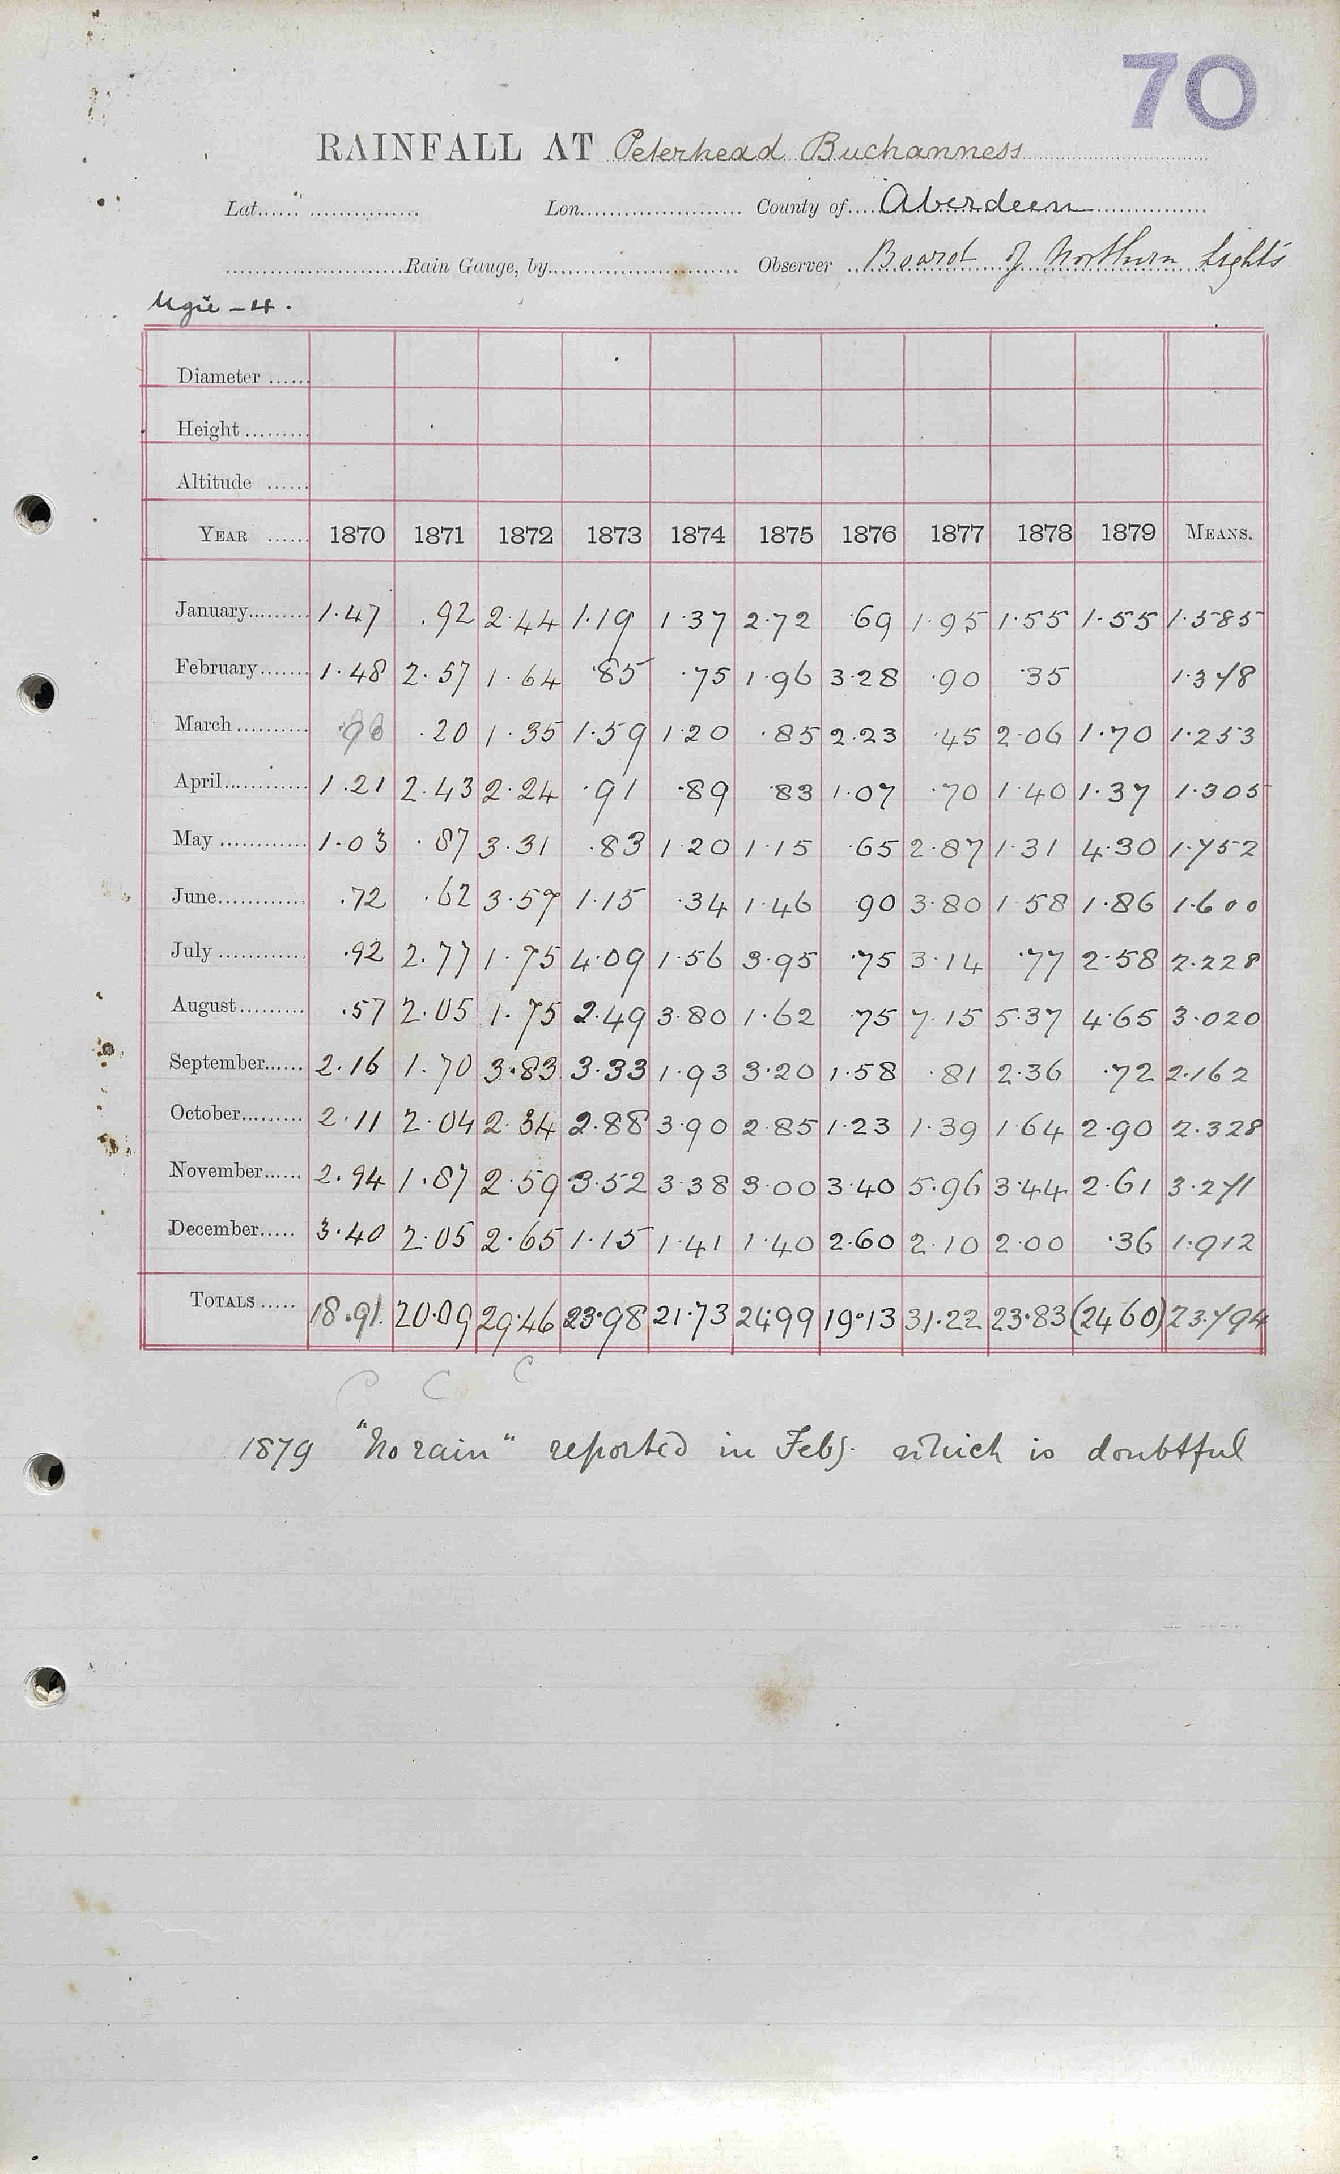 70
RAINFALL AT Peterhead Buchanness
Lat. Lon. County of Aberdeen
Rain Gauge, by Observer Board of Northern Lights
Ugie - 4.
Diameter
Height
Altitude
YEAR 1870 1871 1872 1873 1874 1875 1876 1877 1878 1879 MEANS.
January 1.47 .92 2.44 1.19 1.37 2.72 .69 1.95 1.55 1.55 1.585
February 1.48 2.57 1.64 .85 .75 1.96 3.28 .90 .35 1.378
March .90 .20 1.35 1.59 1.20 .85 2.23 .45 2.06 1.70 1.253
April 1.21 2.43 2.24 .91 .89 .83 1.07 .70 1.40 1.37 1.305
May 1.03 .87 3.31 .83 1.20 1.15 .65 2.87 1.31 4.30 1.752
June .72 .62 3.57 1.15 .34 1.46 90 3.80 1.58 1.86 1.600
July .92 2.77 1.75 4.09 1.56 3.95 .75 3.14 .77 2.58 2.228
August .57 2.05 1.75 2.49 3.80 1.62 .75 7.15 5.37 4.65 3.020
September 2.16 1.70 3.83 3.33 1.93 3.20 1.58 .81 2.36 .72 2.162
October 2.11 2.04 2.34 2.88 3.90 2.85 1.23 1.39 1.64 2.90 2.328
November 2.94 1.87 2.59 3.52 3.38 3.00 3.40 5.96 3.44 2.61 3.271
December 3.40 2.05 2.65 1.15 1.41 1.40 2.60 2.10 2.00 .36 1.912
TOTALS 18.91 20.09 29.46 23.98 21.73 24.99 19.13 31.22 23.83 (24 60) 23.794
C C C
1879 "No rain" reported in Feby. which is doubtful